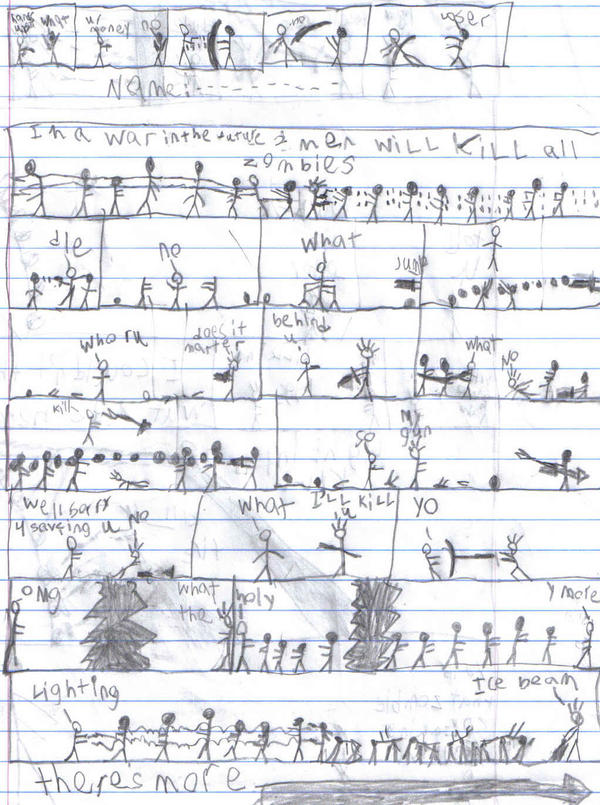 hands up
what
ur money
no
no
loser
Name:
In a war in the future 2 men will kill all
zombies
die
no
what
jump
who r u
does it
marter
behind
u
what
No
kill
so
my
gun
well sorry
4 saveing u
No
what
I'LL KILL
u
yo
OMG
what
the
holy
y more
Lighting
Ice beam
there's more